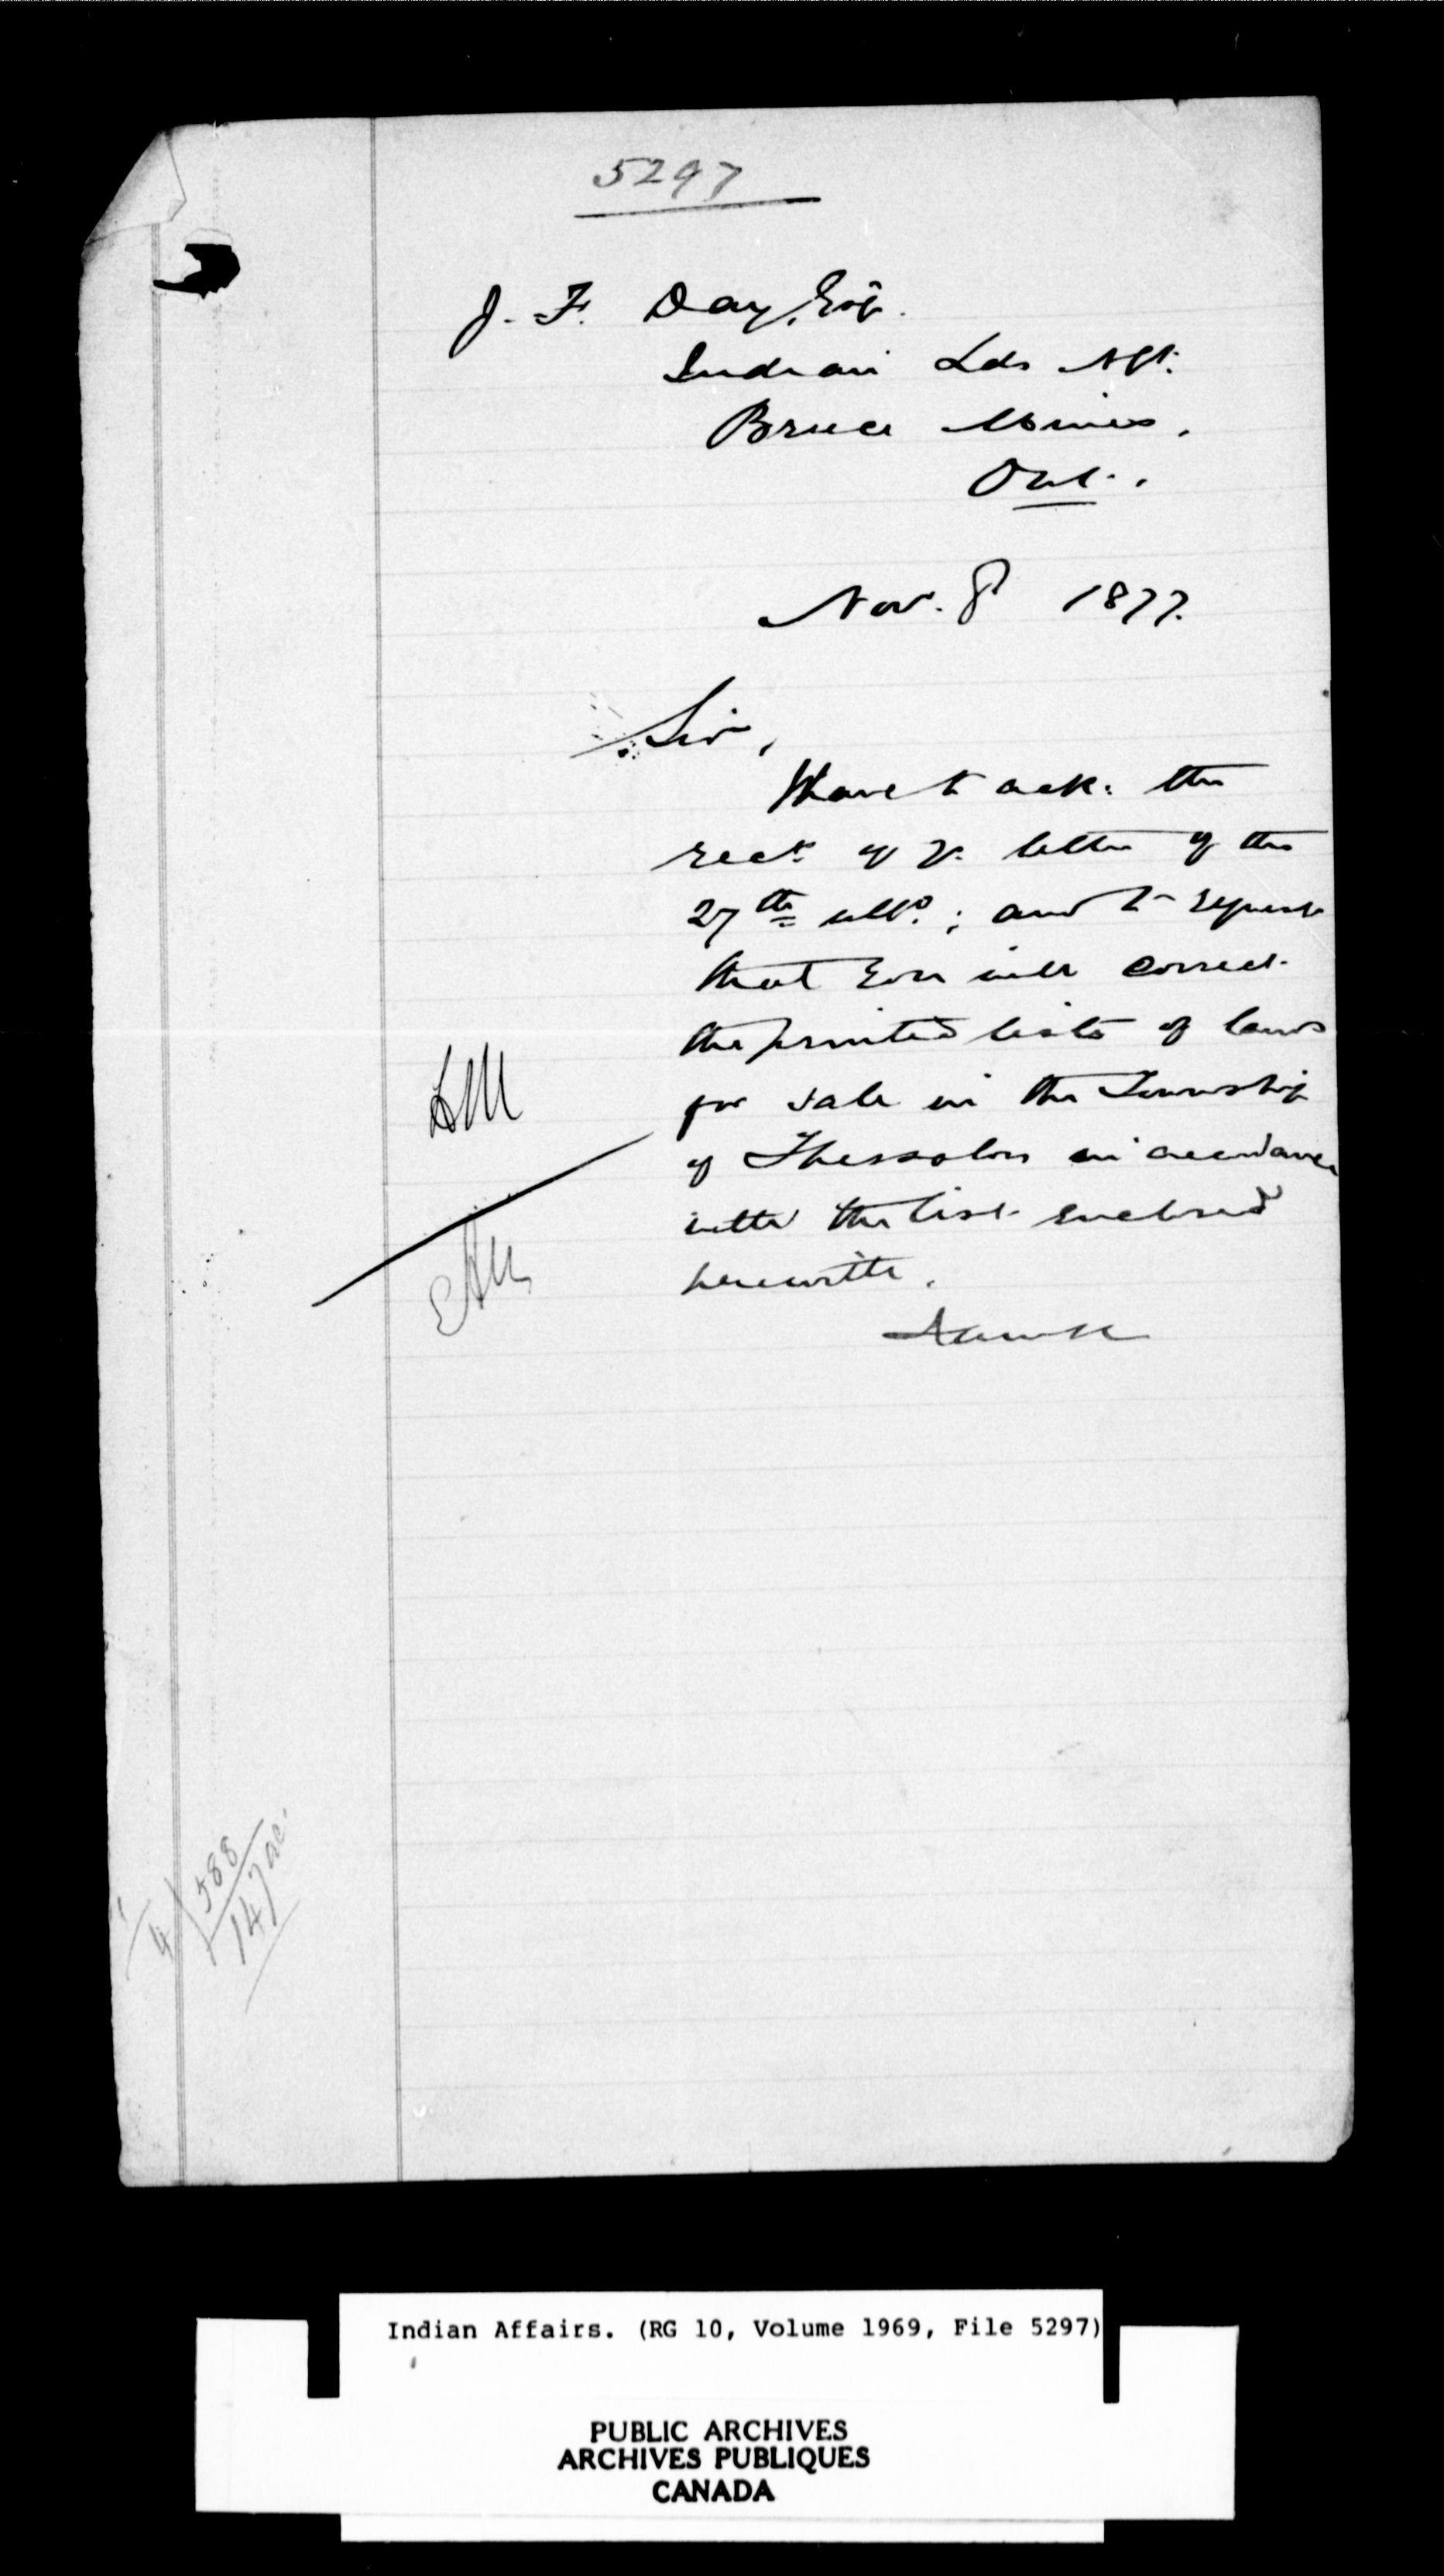 5297
J. F. Day, Esq.
Indian Lds Agt.
Bruce Mines.
Ont.
Nov. 8 1877.
Sir,
I have to ack. the
rect. of yr. letter of the
27th ulto.; and to request
that you will correct
the printed lists of lands
for sale in the Township
of Thessalon in accordance
with the list enclosed
herewith.
4 588
147 ac.
Indian Affairs. (RG 10, Volume 1969, File 5297)
PUBLIC ARCHIVES
ARCHIVES PUBLIQUES
CANADA